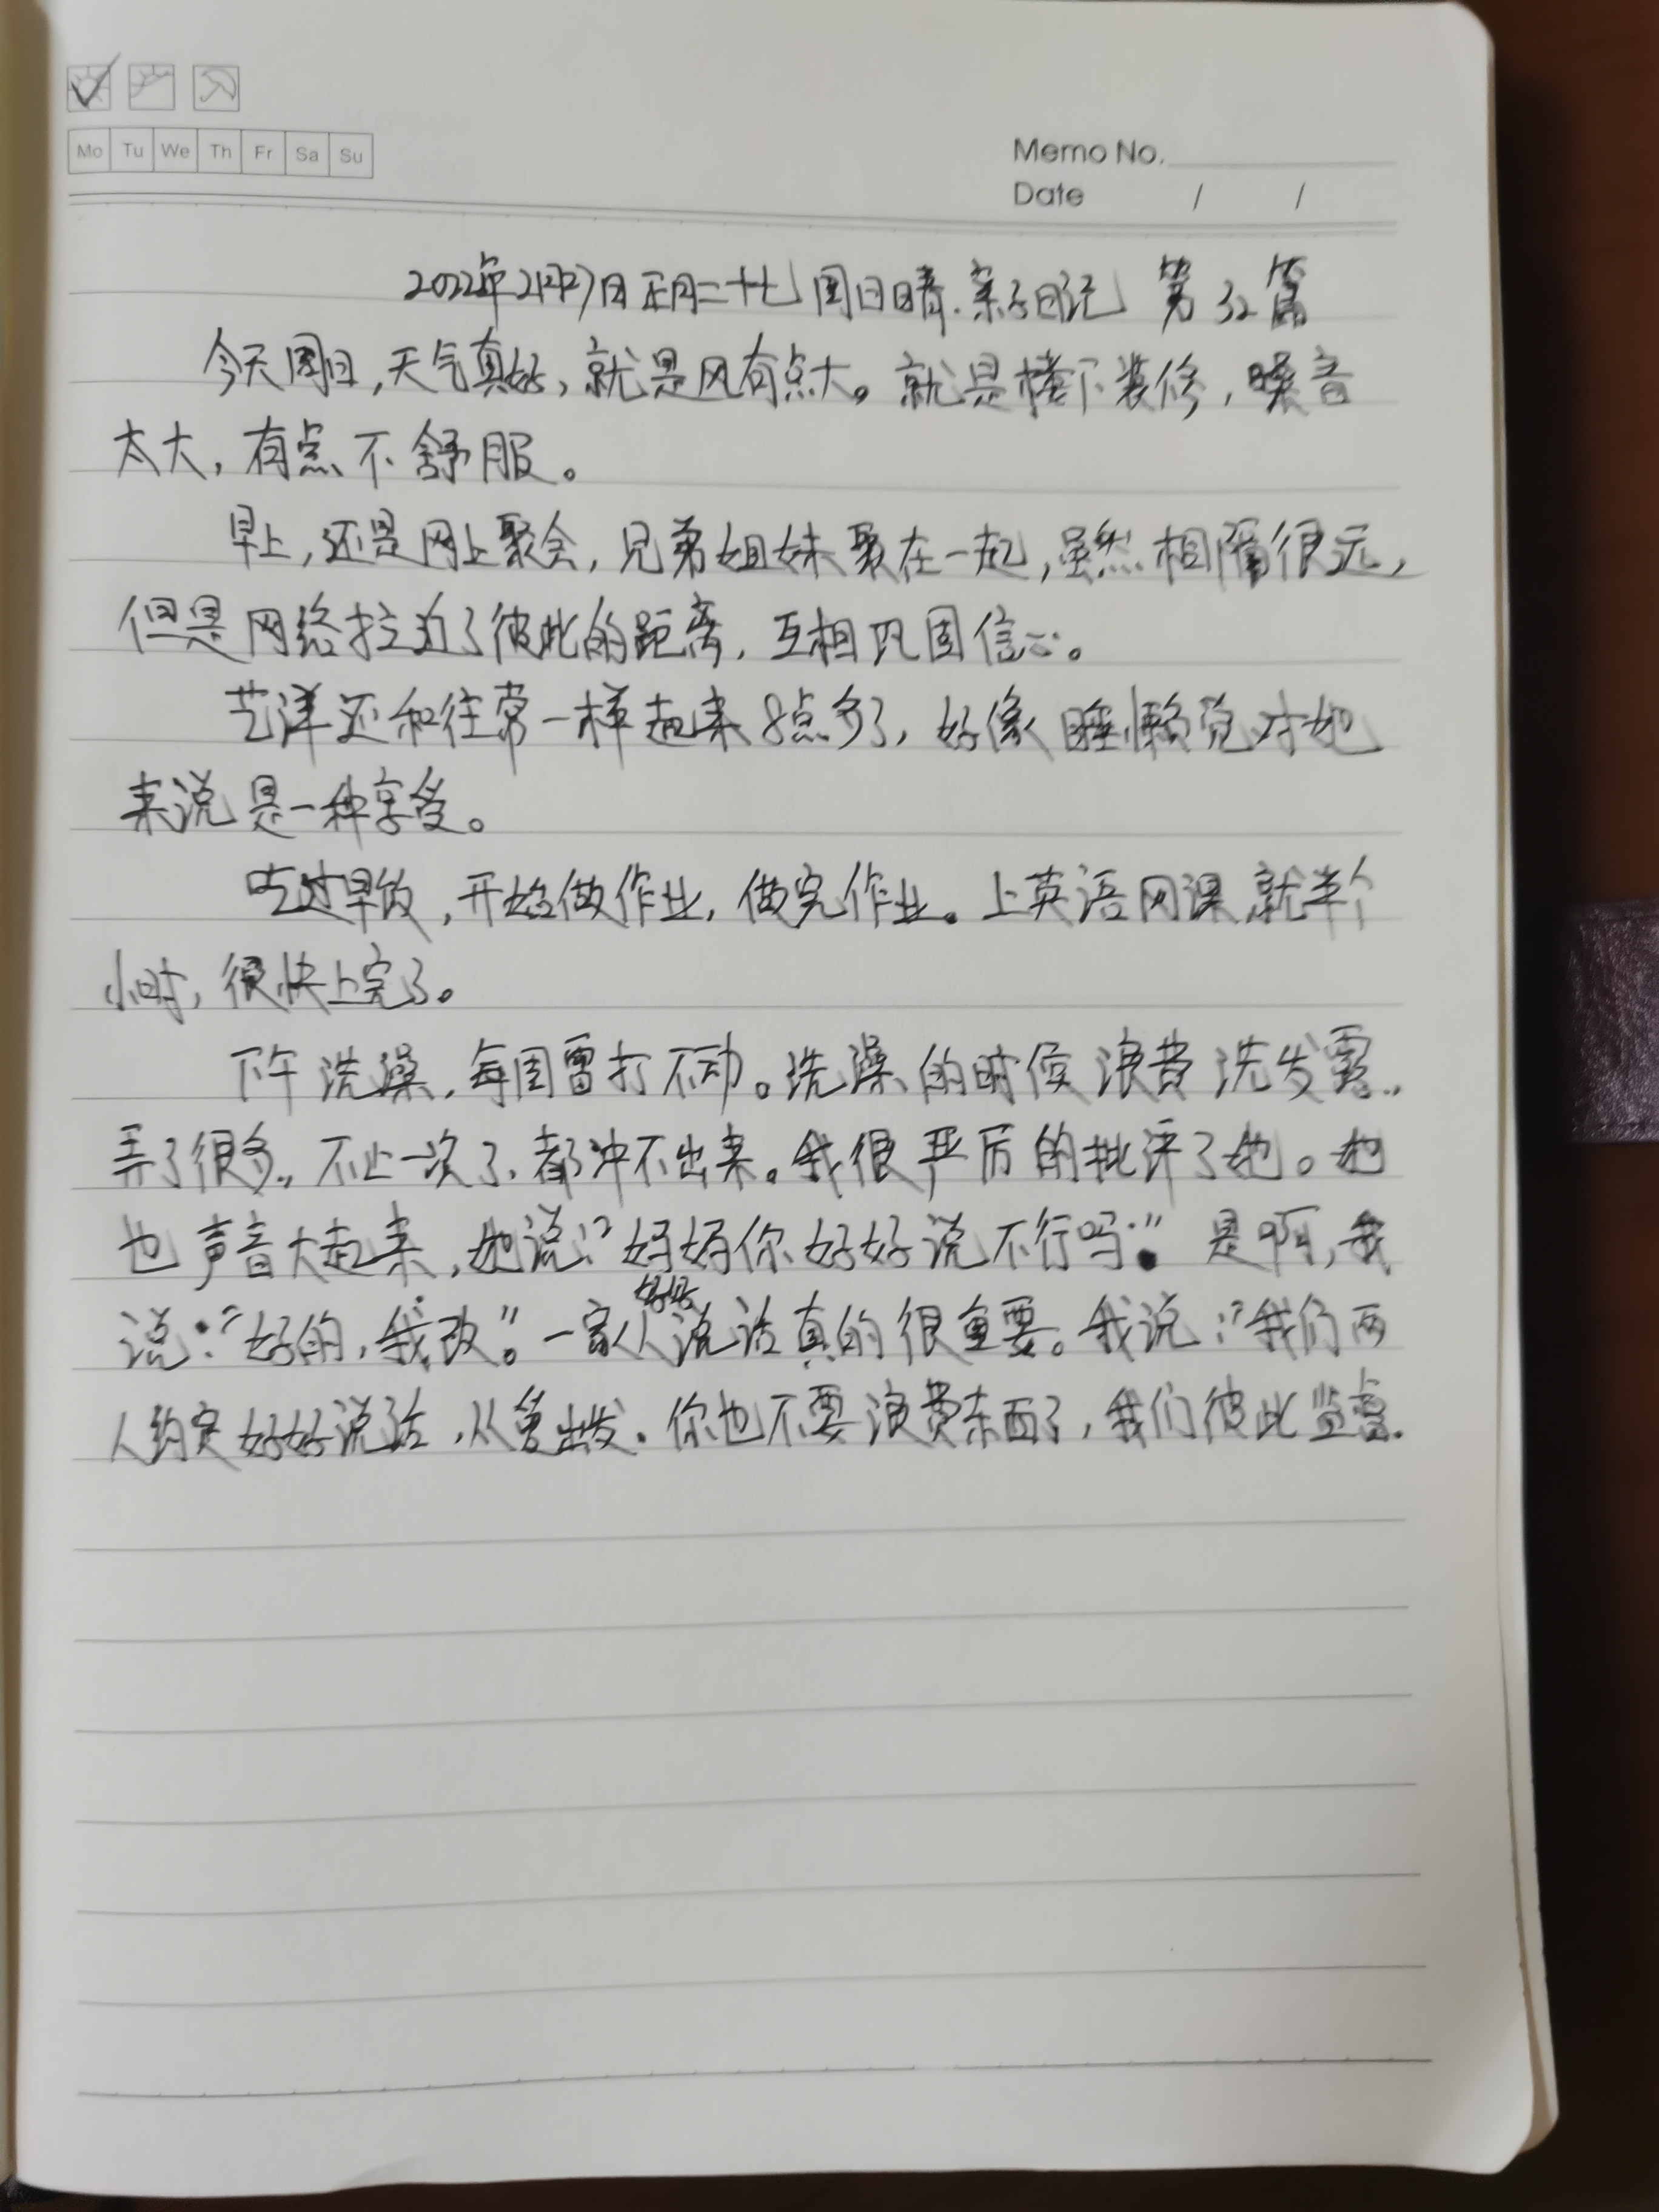 Mo Tu We Th Fr Sa Su
Memo No.
Date / /
2022年2月27日正月二十七 周日晴.亲子日记 第32篇
今天周日,天气真好,就是风有点大。就是楼下装修,噪音
太大,有点不舒服。
早上,还是网上聚会,兄弟姐妹聚在一起,虽然相隔很远,
但是网络拉近了彼此的距离,互相巩固信心。
艺洋还和往常一样起来8点多了,好像睡懒觉对她
来说是一种享受。
吃过早饭,开始做作业,做完作业。上英语网课,就半个
小时,很快上完了。
下午洗澡,每周雷打不动。洗澡的时候浪费洗发露..
弄了很多.,不止一次了,都冲不出来。我很严厉的批评了她。她
也声音大起来,她说:“妈妈你好好说不行吗.” 是啊,我
说:“好的,我改”。一家人好好说话真的很重要。我说:“我们两
人约定好好说话,从爱出发.你也不要浪费东西了,我们彼此监督.